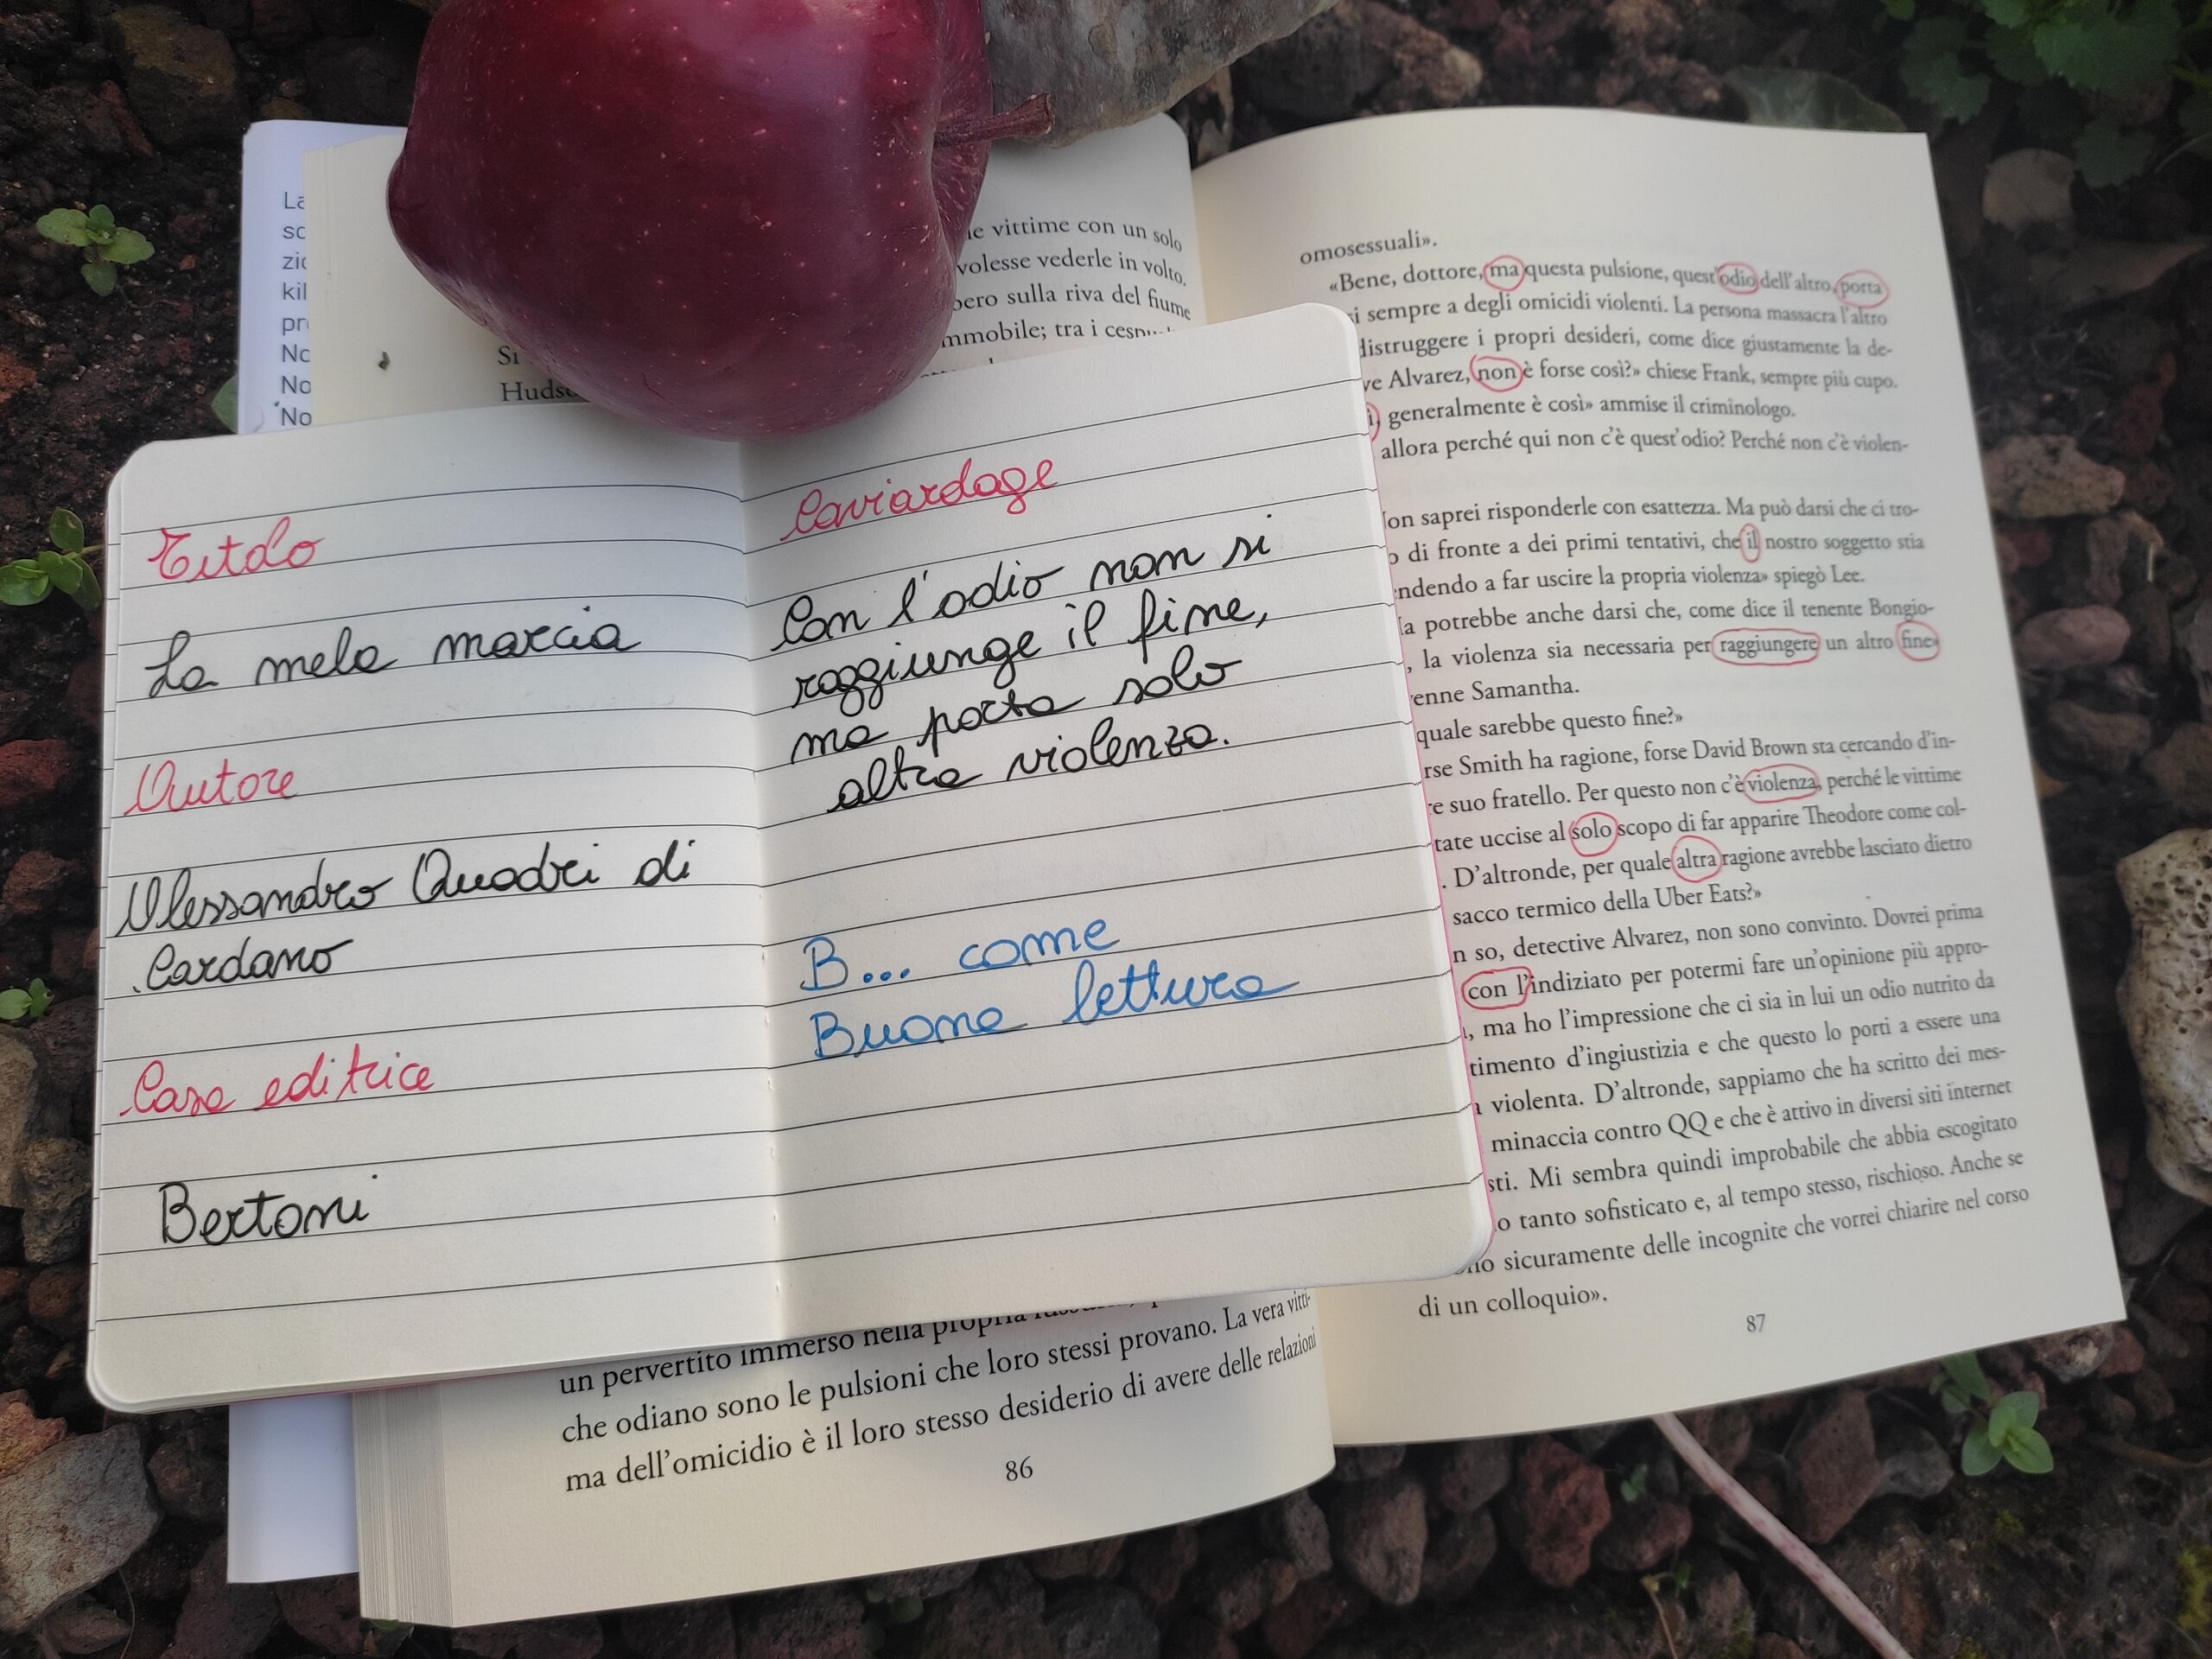 La
No
No
No
le vittime con un solo
volesse vederle in volto.
sulla riva del fiume
tra i
Si
Titolo
La mela marcia
Autore
Alessandro Quadri di
Cardano
Casa editrice
Bertoni
Caviardage
Con l'odio non si
raggiunge il fine,
ma porta solo
altra violenza.
B... come
Buona lettura
un pervertito immerso nella propria
che odiano sono le pulsioni che loro stessi provano. La vera vitti-
ma dell'omicidio è il loro stesso desiderio di avere delle relazioni
86
omosessuali».
«Bene, dottore, ma questa pulsione, quest'odio dell'altro, porta
sempre a degli omicidi violenti. La persona massacra l'altro
distruggere i propri desideri, come dice giustamente la de-
Alvarez, non è forse così?» chiese Frank, sempre più cupo.
generalmente è così» ammise il criminologo.
allora perché qui non c'è quest'odio? Perché non c'è violen-
saprei risponderle con esattezza. Ma può darsi che ci tro-
di fronte a dei primi tentativi, che il nostro soggetto stia
a far uscire la propria violenza» spiegò Lee.
potrebbe anche darsi che, come dice il tenente Bongio-
, la violenza sia necessaria per raggiungere un altro fine»
Samantha.
quale sarebbe questo fine?»
Smith ha ragione, forse David Brown sta cercando d'in-
suo fratello. Per questo non c'è violenza, perché le vittime
uccise al solo scopo di far apparire Theodore come col-
. D'altronde, per quale altra ragione avrebbe lasciato dietro
sacco termico della Uber Eats?»
so, detective Alvarez, non sono convinto. Dovrei prima
con l'indiziato per potermi fare un'opinione più appro-
, ma ho l'impressione che ci sia in lui un odio nutrito da
d'ingiustizia e che questo lo porti a essere una
violenta. D'altronde, sappiamo che ha scritto dei mes-
minaccia contro QQ e che è attivo in diversi siti internet
Mi sembra quindi improbabile che abbia escogitato
tanto sofisticato e, al tempo stesso, rischioso. Anche se
sicuramente delle incognite che vorrei chiarire nel corso
di un colloquio».
87